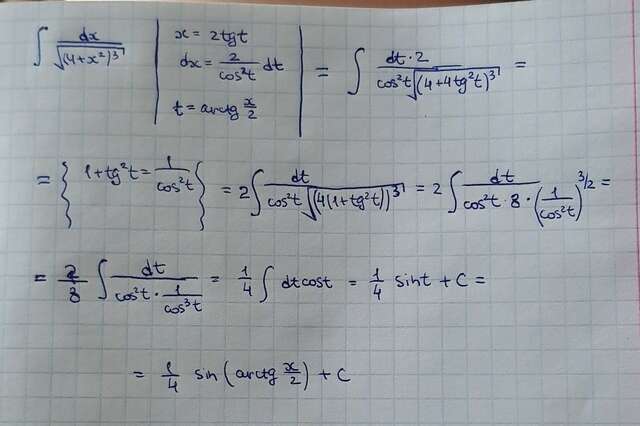 ∫ dx/√((4+x²)³) | x = 2tgt dx = 2/cos²t dt t = arctg x/2 | = ∫ dt·2/(cos²t √((4+4tg²t)³)) =
= { 1+tg²t = 1/cos²t } = 2∫ dt/(cos²t √((4(1+tg²t))³)) = 2 ∫ dt/(cos²t · 8 · (1/cos²t)^(3/2)) =
= 2/8 ∫ dt/(cos²t · 1/cos³t) = 1/4 ∫ dt cost = 1/4 sint + C =
= 1/4 sin(arctg x/2) + C